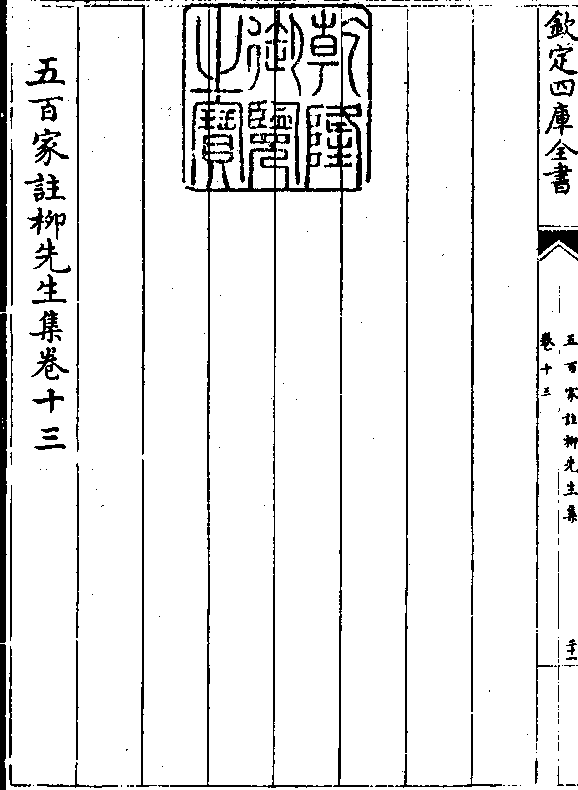 欽定四庫全書
五百家註柳先生集
卷十三
二十一
乾隆
御覽
之寶
五百家註柳先生集卷十三